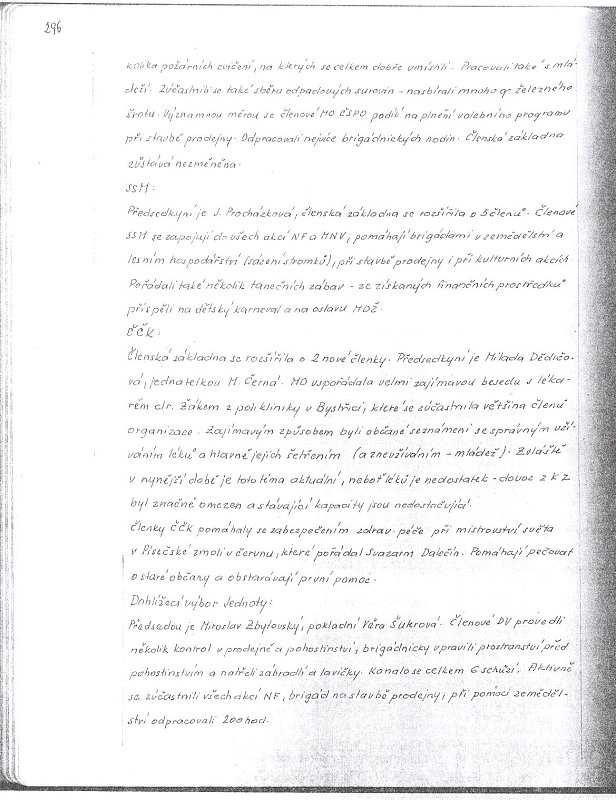 296
kolika požárních cvičení, na kterých se celkem dobře umístili. Pracovali také s mlá-
deží. Zúčastnili se také sběru odpadových surovin - nasbírali mnoho q železného
šrotu. Významnou měrou se členové MO ČSPO podílí na plnění volebního programu
při stavbě prodejny. Odpracovali nejvíce brigádnických hodin. Členská základna
zůstává nezměněna.
SSM:
Předsedkyní je J. Procházková, členská základna se rozšířila o 5 členů. Členové
SSM se zapojují do všech akcí NF a MNV, pomáhají brigádami v zemědělství a
lesním hospodářství (sázení stromků), při stavbě prodejny i při kulturních akcích
Pořádali také několik tanečních zábav - ze získaných finančních prostředků
přispěli na dětský karneval a na oslavu MDŽ.
ČČK:
Členská základna se rozšířila o 2 nové členky. Předsedkyní je Milada Dědičo-
vá, jednatelkou M. Černá. MO uspořádala velmi zajímavou besedu s léka-
řem dr. Žákem z polikliniky v Bystřici, které se zúčastnila většina členů
organizace. Zajímavým způsobem byli občané seznámeni se správným uží-
váním léků a hlavně jejich šetřením (a zneužíváním - mládež). Zvláště
v nynější době je toto téma aktuální, neboť léků je nedostatek - dovoz z KZ
byl značně omezen a stávající kapacity jsou nedostačující.
Členky ČČK pomáhaly se zabezpečením zdrav. péče při mistrovství světa
v Písečské zmoli v červnu, které pořádal Svazarm Dalečín. Pomáhají pečovat
o staré občany a obstarávají první pomoc.
Dohlížecí výbor Jednoty:
Předsedou je Miroslav Zbytovský, pokladní Věra Šukrová. Členové DV provedli
několik kontrol v prodejně a pohostinství, brigádnicky upravili prostranství před
pohostinstvím a natřeli zábradlí a lavičky. Konalo se celkem 6 schůzí. Aktivně
se zúčastnili všech akcí NF, brigád na stavbě prodejny, při pomoci zeměděl-
ství odpracovali 200 hod.